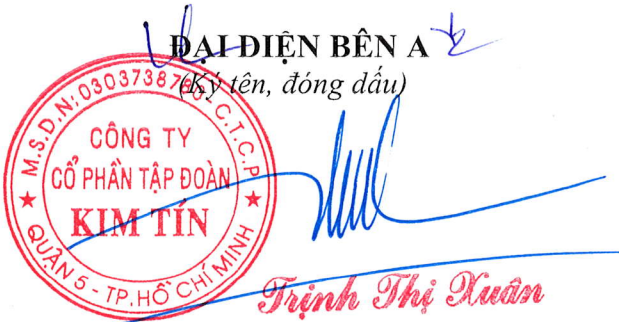 ĐẠI DIỆN BÊN A
(Ký tên, đóng dấu)
M.S.D.N: 03037387 C.T.C.P
CÔNG TY
CỔ PHẦN TẬP ĐOÀN
KIM TÍN
QUẬN 5 - TP. HỒ CHÍ MINH
Trịnh Thị Xuân